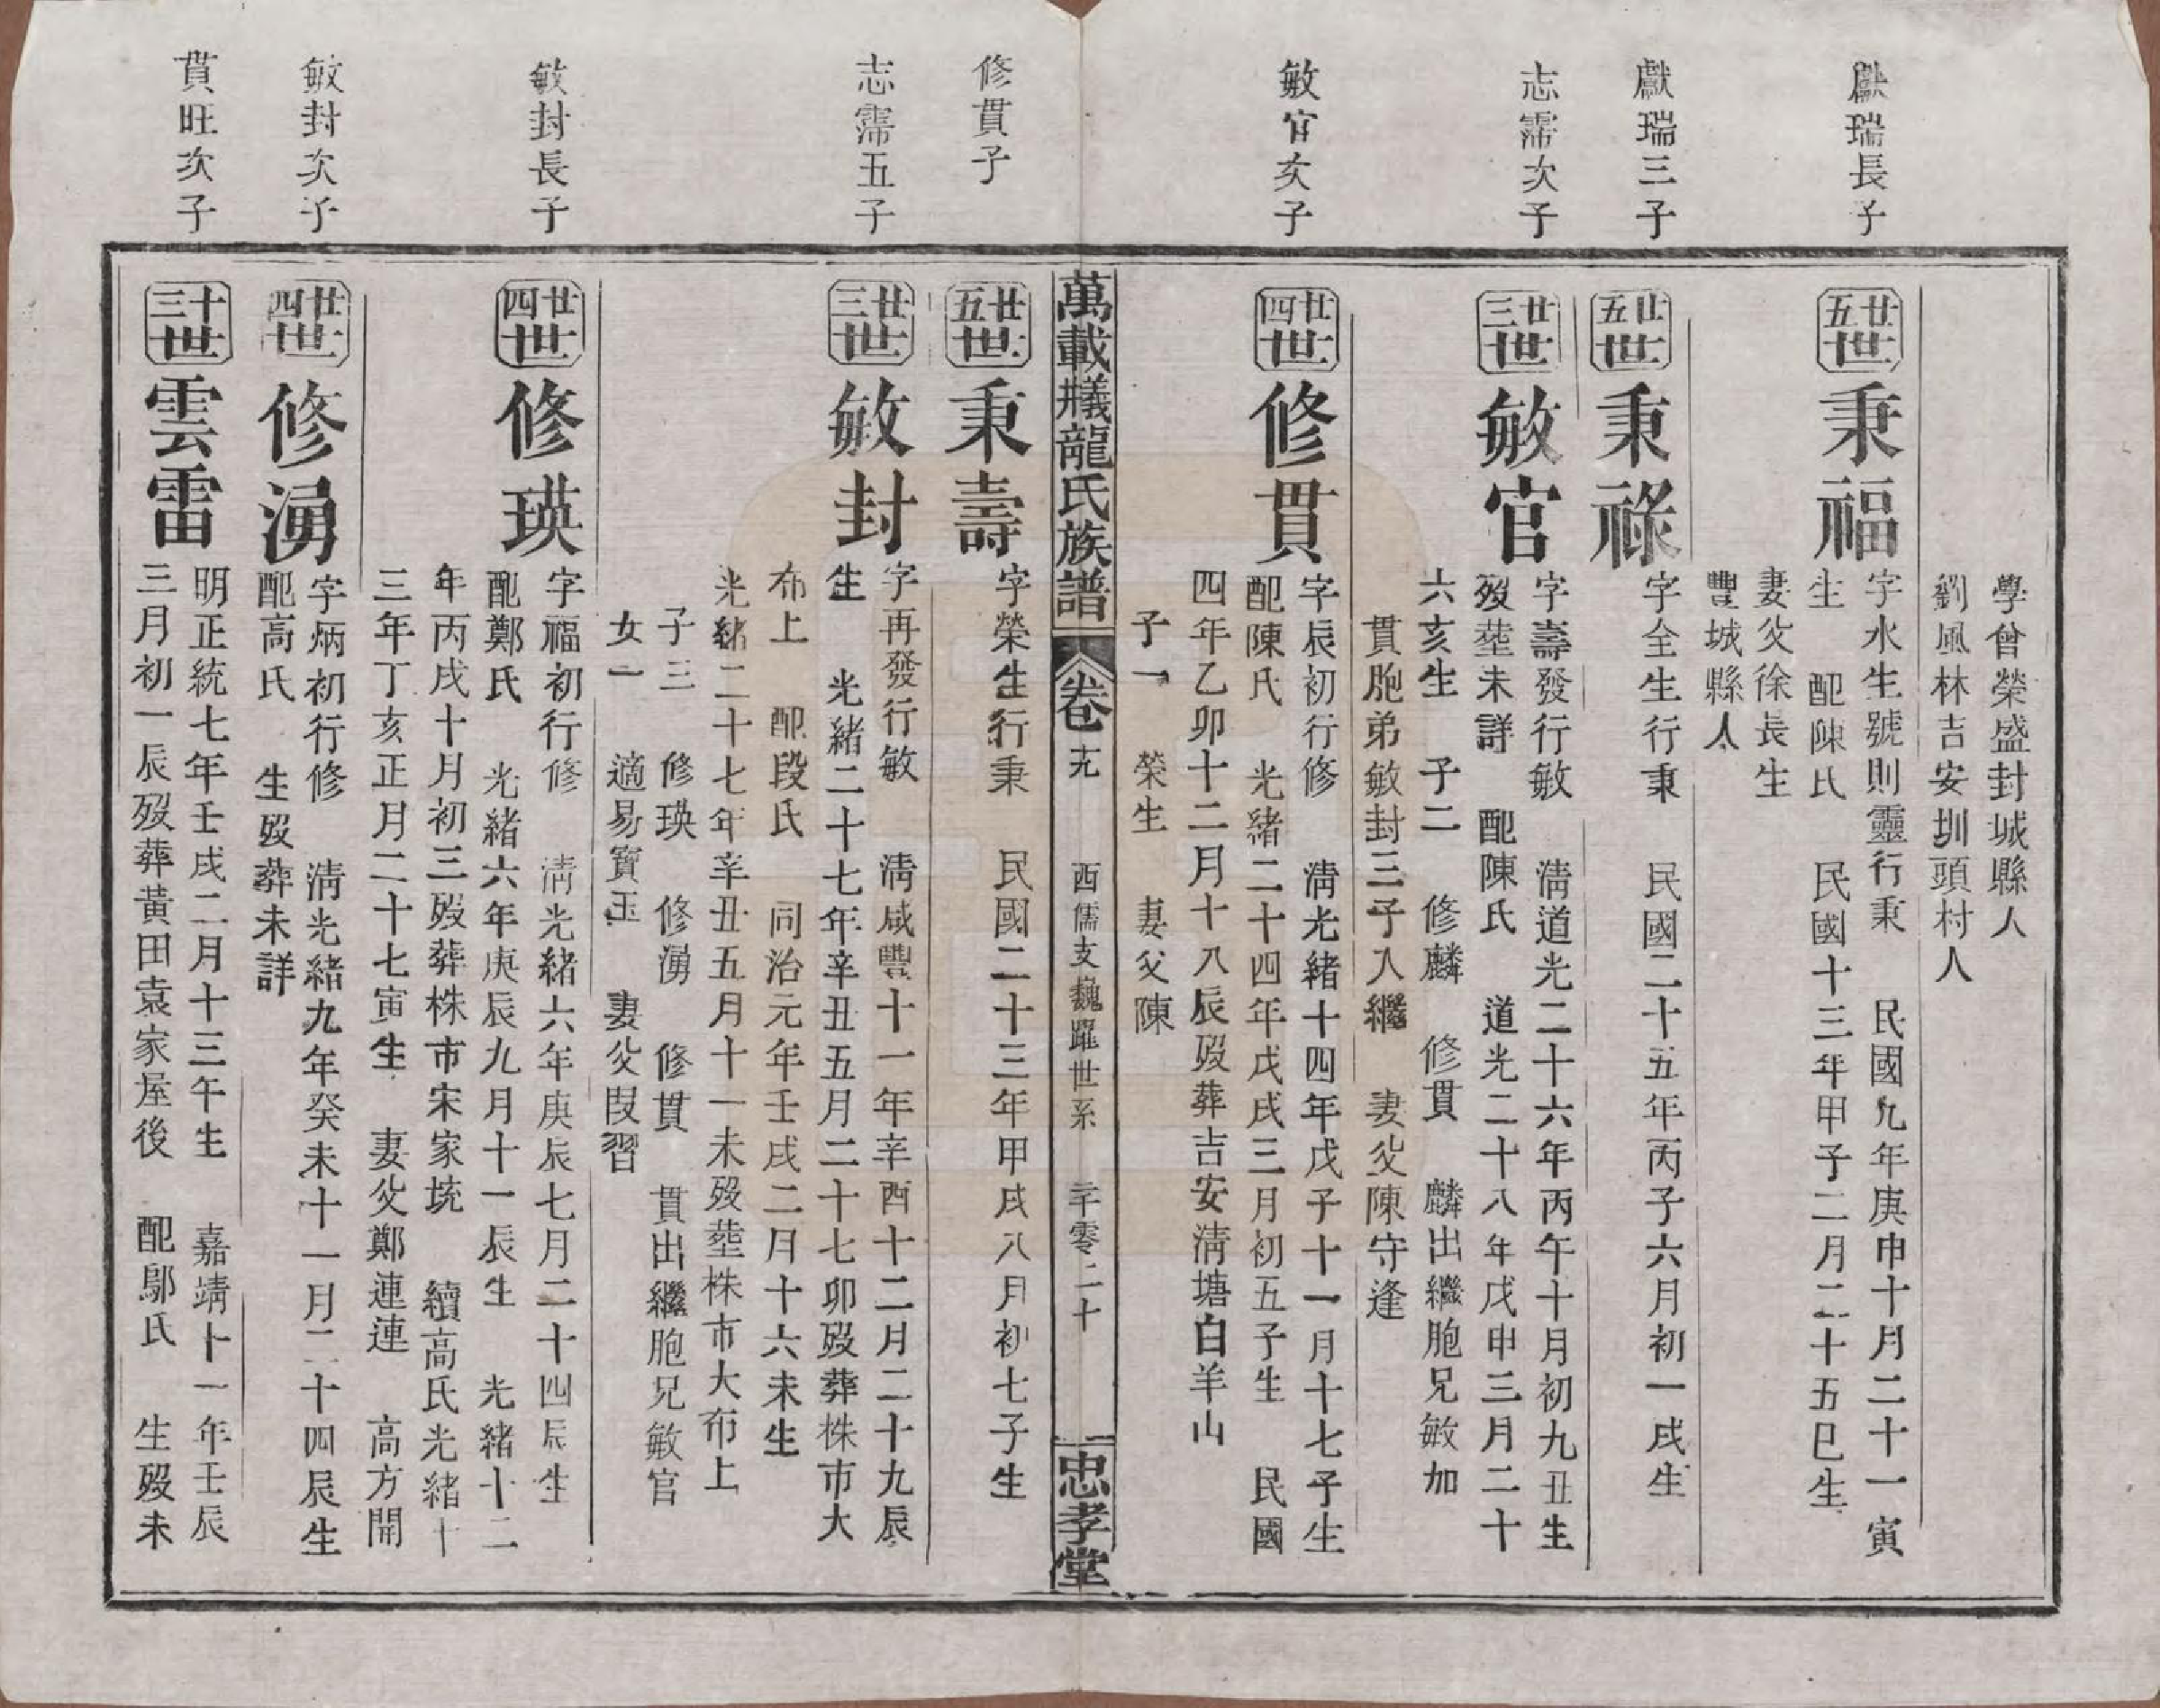 學曾榮盛封城縣人
劉風林吉安圳頭村人
獻瑞長子
廿五世
秉福
字水生號則靈行秉 民國九年庚申十月二十一寅
生 配陳氏 民國十三年甲子二月二十五巳生
妻父徐長生
豐城縣人
獻瑞三子
廿五世
秉祿
字全生行秉 民國二十五年丙子六月初一戌生
志霈次子
廿三世
敏官
字壽發行敏 淸道光二十六年丙午十月初九丑生
歿塟未詳 配陳氏 道光二十八年戊申三月二十
六亥生 子二 修麟 修貫 麟出繼胞兄敏加
貫胞弟敏封三子入繼 妻父陳守逢
敏官次子
廿四世
修貫
字辰初行修 淸光緒十四年戊子十一月十七子生
配陳氏 光緒二十四年戊戌三月初五子生 民國
四年乙卯十二月十八辰歿葬吉安淸塘白羊山
子一 榮生 妻父陳
萬載㸁龍氏族譜 卷 西儒支巍躍世系 二千零二十 忠孝堂
修貫子
廿五世
秉壽
字榮生行秉 民國二十三年甲戌八月初七子生
志霈五子
廿三世
敏封
字再發行敏 淸咸豐十一年辛酉十二月二十九辰
生 光緒二十七年辛丑五月二十七卯歿葬株市大
布上 配段氏 同治元年壬戌二月十六未生
光緒二十七年辛丑五月十一未歿塟株市大布上
子三 修瑛 修湧 修貫 貫出繼胞兄敏官
女一 適易寶玉 妻父段習
敏封長子
廿四世
修瑛
字福初行修 淸光緒六年庚辰七月二十四辰生
配鄭氏 光緒六年庚辰九月十一辰生 光緒十二
年丙戌十月初三歿葬株市宋家垅 續高氏光緒十
三年丁亥正月二十七寅生 妻父鄭連連 高方開
敏封次子
廿四世
修湧
字炳初行修 淸光緒九年癸未十一月二十四辰生
配高氏 生歿葬未詳
貫旺次子
十三世
雲雷
明正統七年壬戌二月十三午生 嘉靖十一年壬辰
三月初一辰歿葬黃田袁家屋後 配鄔氏 生歿未